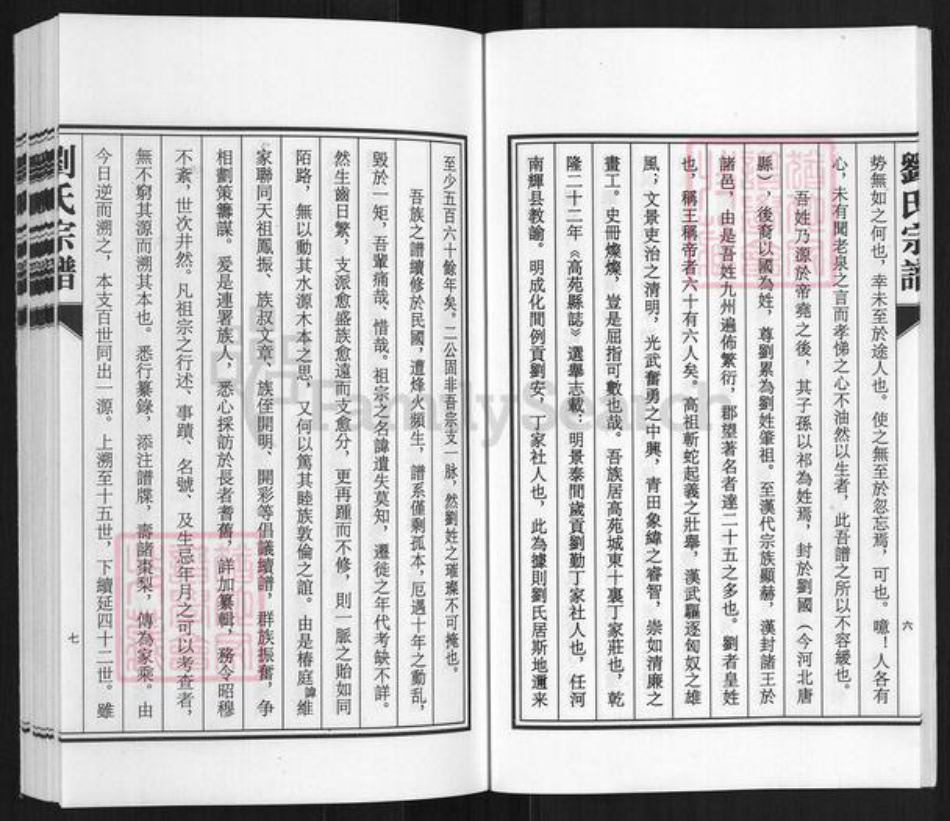 劉氏宗譜
勢無如之何也，幸未至於途人也。使之無至於忽忘焉，可也。噫！人各有
心，未有聞老泉之言而孝悌之心不油然以生者，此吾譜之所以不容緩也。
吾姓乃源於帝堯之後，其子孫以祁為姓焉，封於劉國（今河北唐
縣），後裔以國為姓，尊劉累為劉姓肇祖。至漢代宗族顯赫，漢封諸王於
諸邑，由是吾姓九州遍佈繁衍，郡望著名者達二十五之多也。劉者皇姓
也，稱王稱帝者六十有六人矣。高祖斬蛇起義之壯舉，漢武驅逐匈奴之雄
風；文景吏治之清明，光武奮勇之中興，青田象緯之睿智，崇如清廉之
畫工。史冊燦燦，豈是屈指可數也哉。吾族居高苑城東十裏丁家莊也，乾
隆二十二年《高苑縣誌》選舉志載：明景泰間歲貢劉勤丁家社人也，任河
南輝县教諭。明成化間例貢劉安，丁家社人也，此為據則劉氏居斯地邇来
六
至少五百六十餘年矣。二公固非吾宗支一脉，然劉姓之璀璨不可掩也。
吾族之譜續修於民國，遭烽火頻生，譜系僅剩孤本，厄遇十年之動亂，
毀於一炬，吾輩痛哉、惜哉。祖宗之名諱遺失莫知，遷徙之年代考缺不詳。
然生齒日繁，支派愈盛族愈遠而支愈分，更再踵而不修，則一脈之貽如同
陌路，無以動其水源木本之思，又何以篤其睦族敦倫之誼。由是椿庭諱維
家聯同天祖鳳振、族叔文章、族侄開明、開彩等倡議續譜，群族振奮，争
相劃策籌謀。爰是連署族人，悉心採訪於長者耆舊，詳加纂輯，務令昭穆
不紊，世次井然。凡祖宗之行述、事蹟、名號、及生忌年月之可以考查者，
無不窮其源而溯其本也。悉行纂錄，添注譜牒，壽諸棗梨，傳為家乘。由
今日逆而溯之，本支百世同出一源。上溯至十五世，下續延四十二世。雖
劉氏宗譜
七
FamilySearch